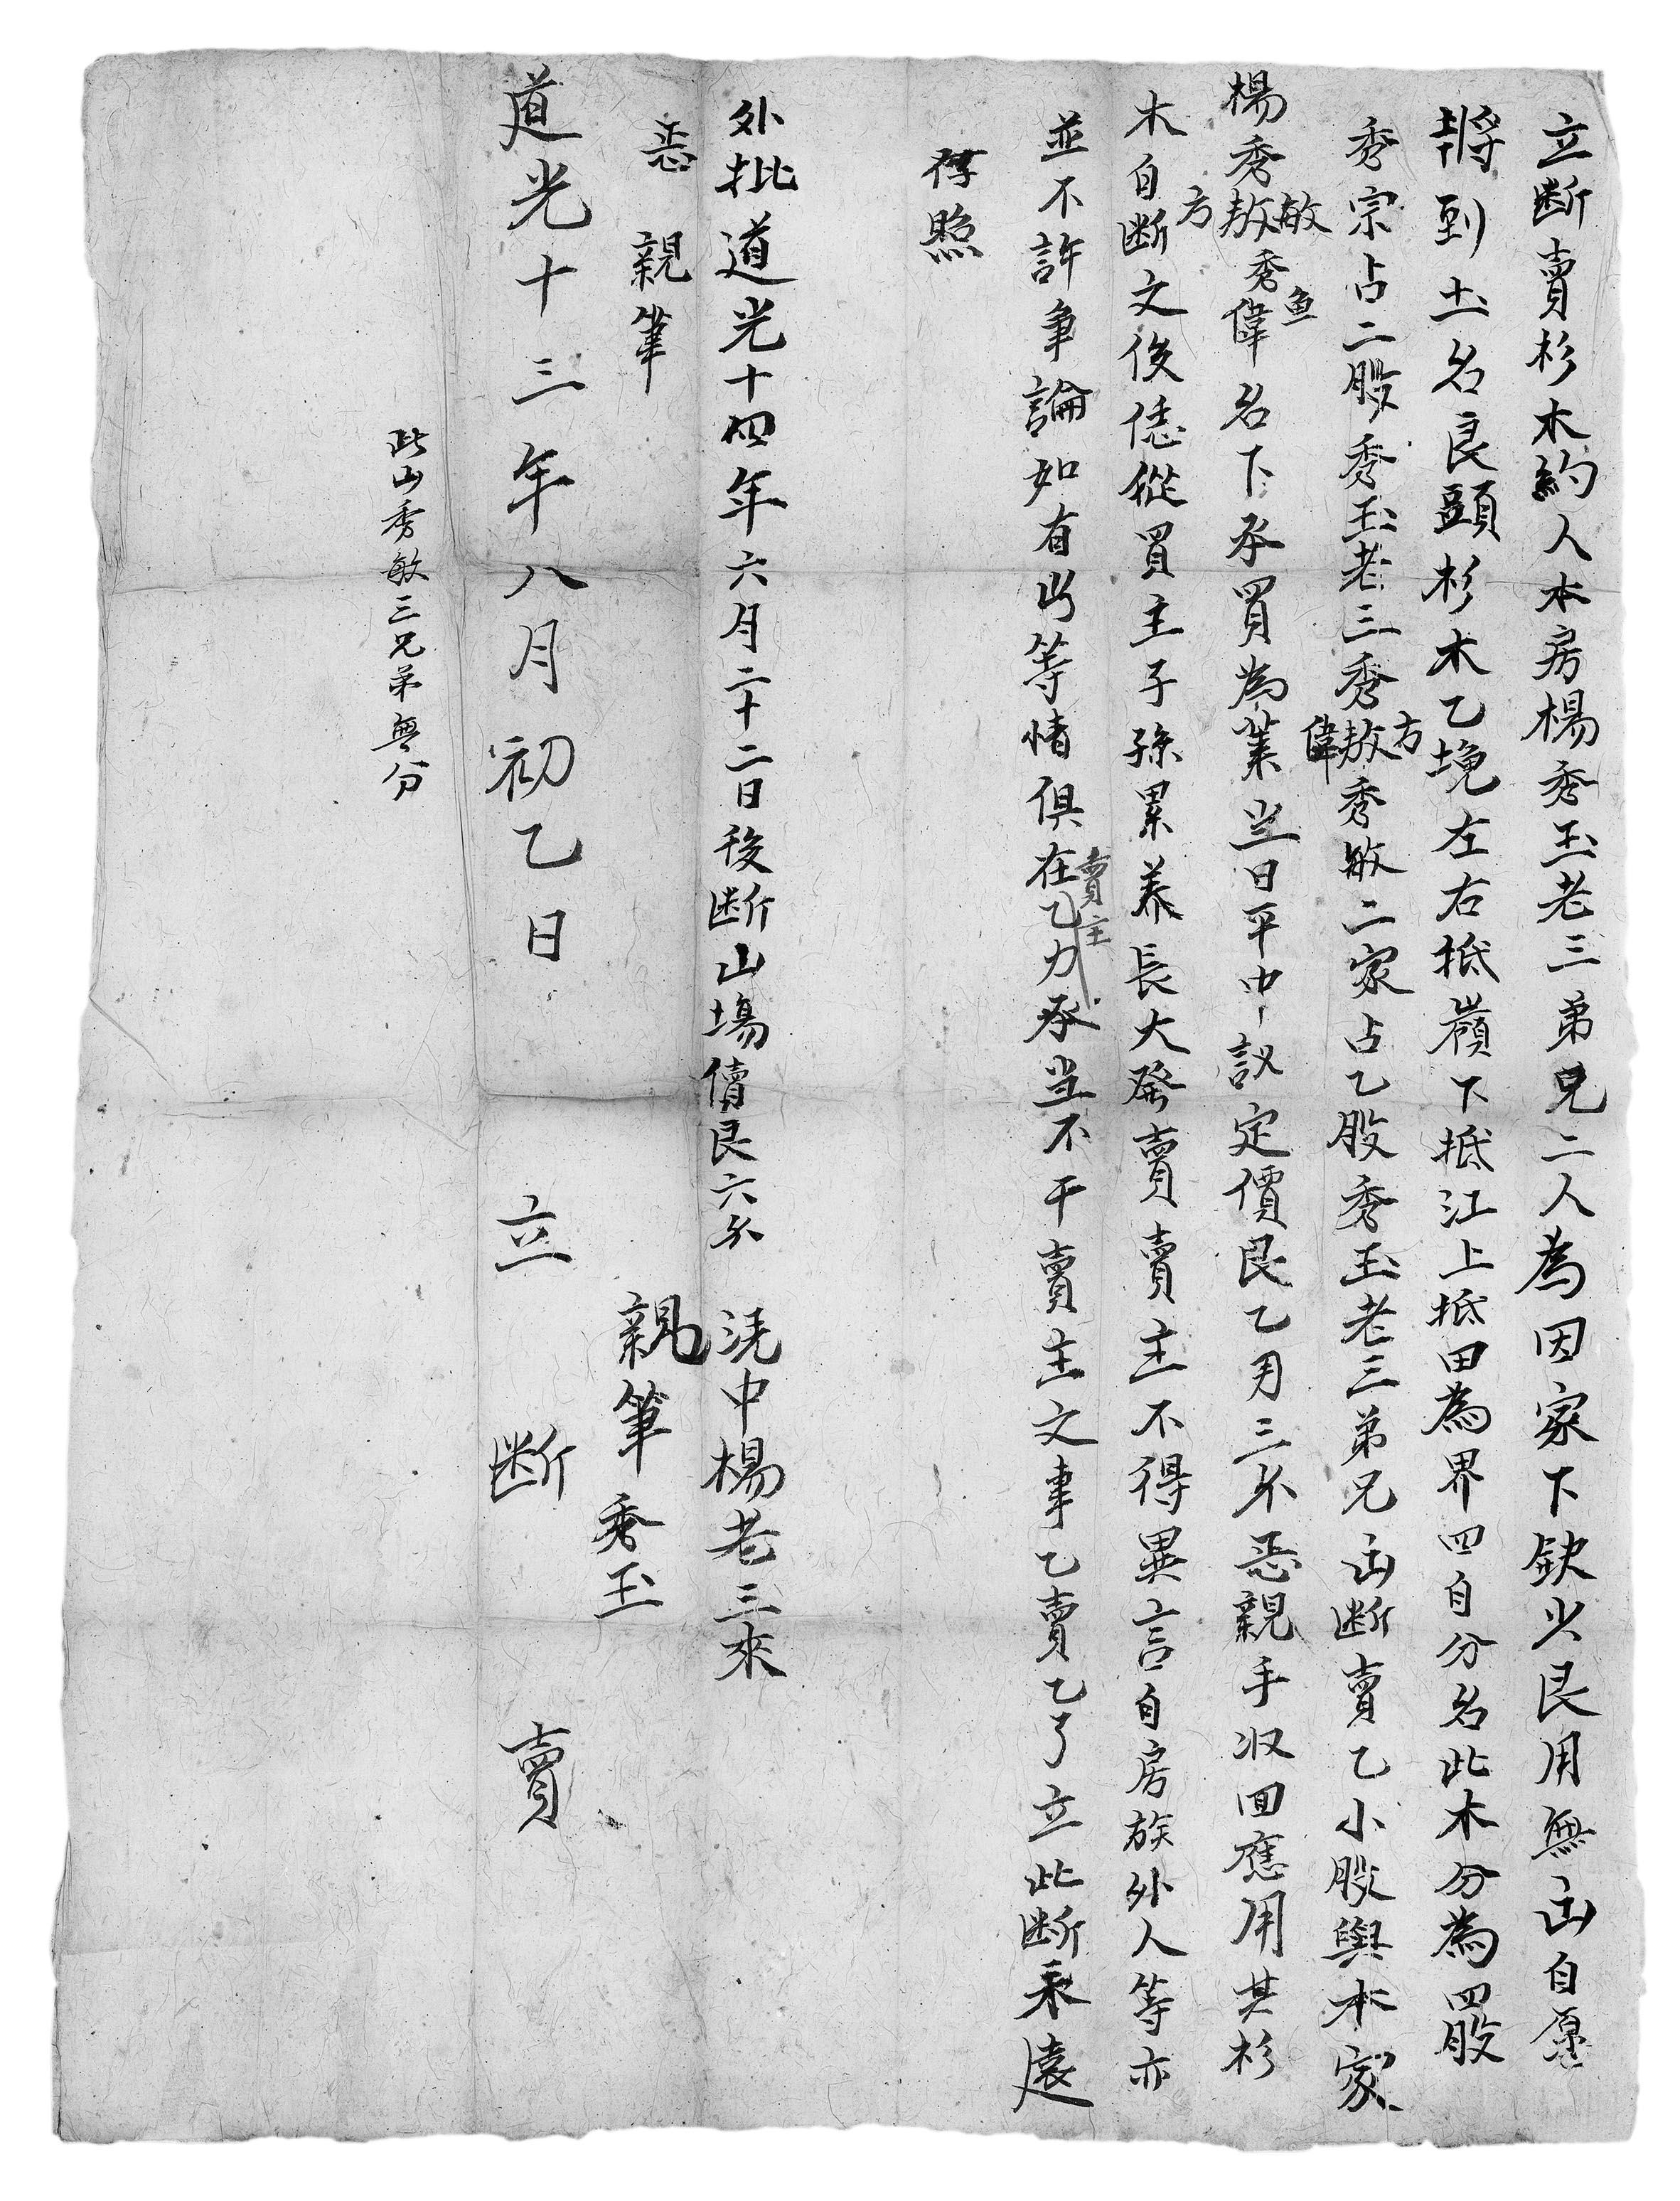 立断賣杉木約人本房楊秀玉老三弟兄二人為因家下缺少艮用無出自愿
將到土名良頭杉木乙塊左右抵嶺下抵江上抵田為界四自分名此木分為四股
秀宗占二股秀玉老三秀敖方偉秀敏二家占乙股秀玉老三弟兄出断賣乙小股與本家
楊秀敖方敏秀偉魚名下承買為業当日平中議定價艮乙両三分恶親手収回應用其杉
木自断文後恁從買主子孫累养長大發賣賣主不得異言自房族外人等亦
並不許争論如有此等情俱在賣主乙力承当不干賣主之事乙賣乙了立此断永遠
存照
外批道光十四年六月二十二日後断山塲價艮六分 凴中楊老三來
恶 親筆
親筆秀玉
道光十三年八月初乙日 立断賣
此山秀敏三兄弟無分